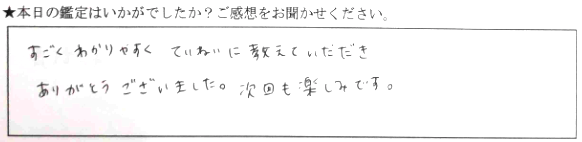 ★本日の鑑定はいかがでしたか？ご感想をお聞かせください。
すごく わかりやすく ていねいに 教えていただき
ありがとう ございました。次回も楽しみです。